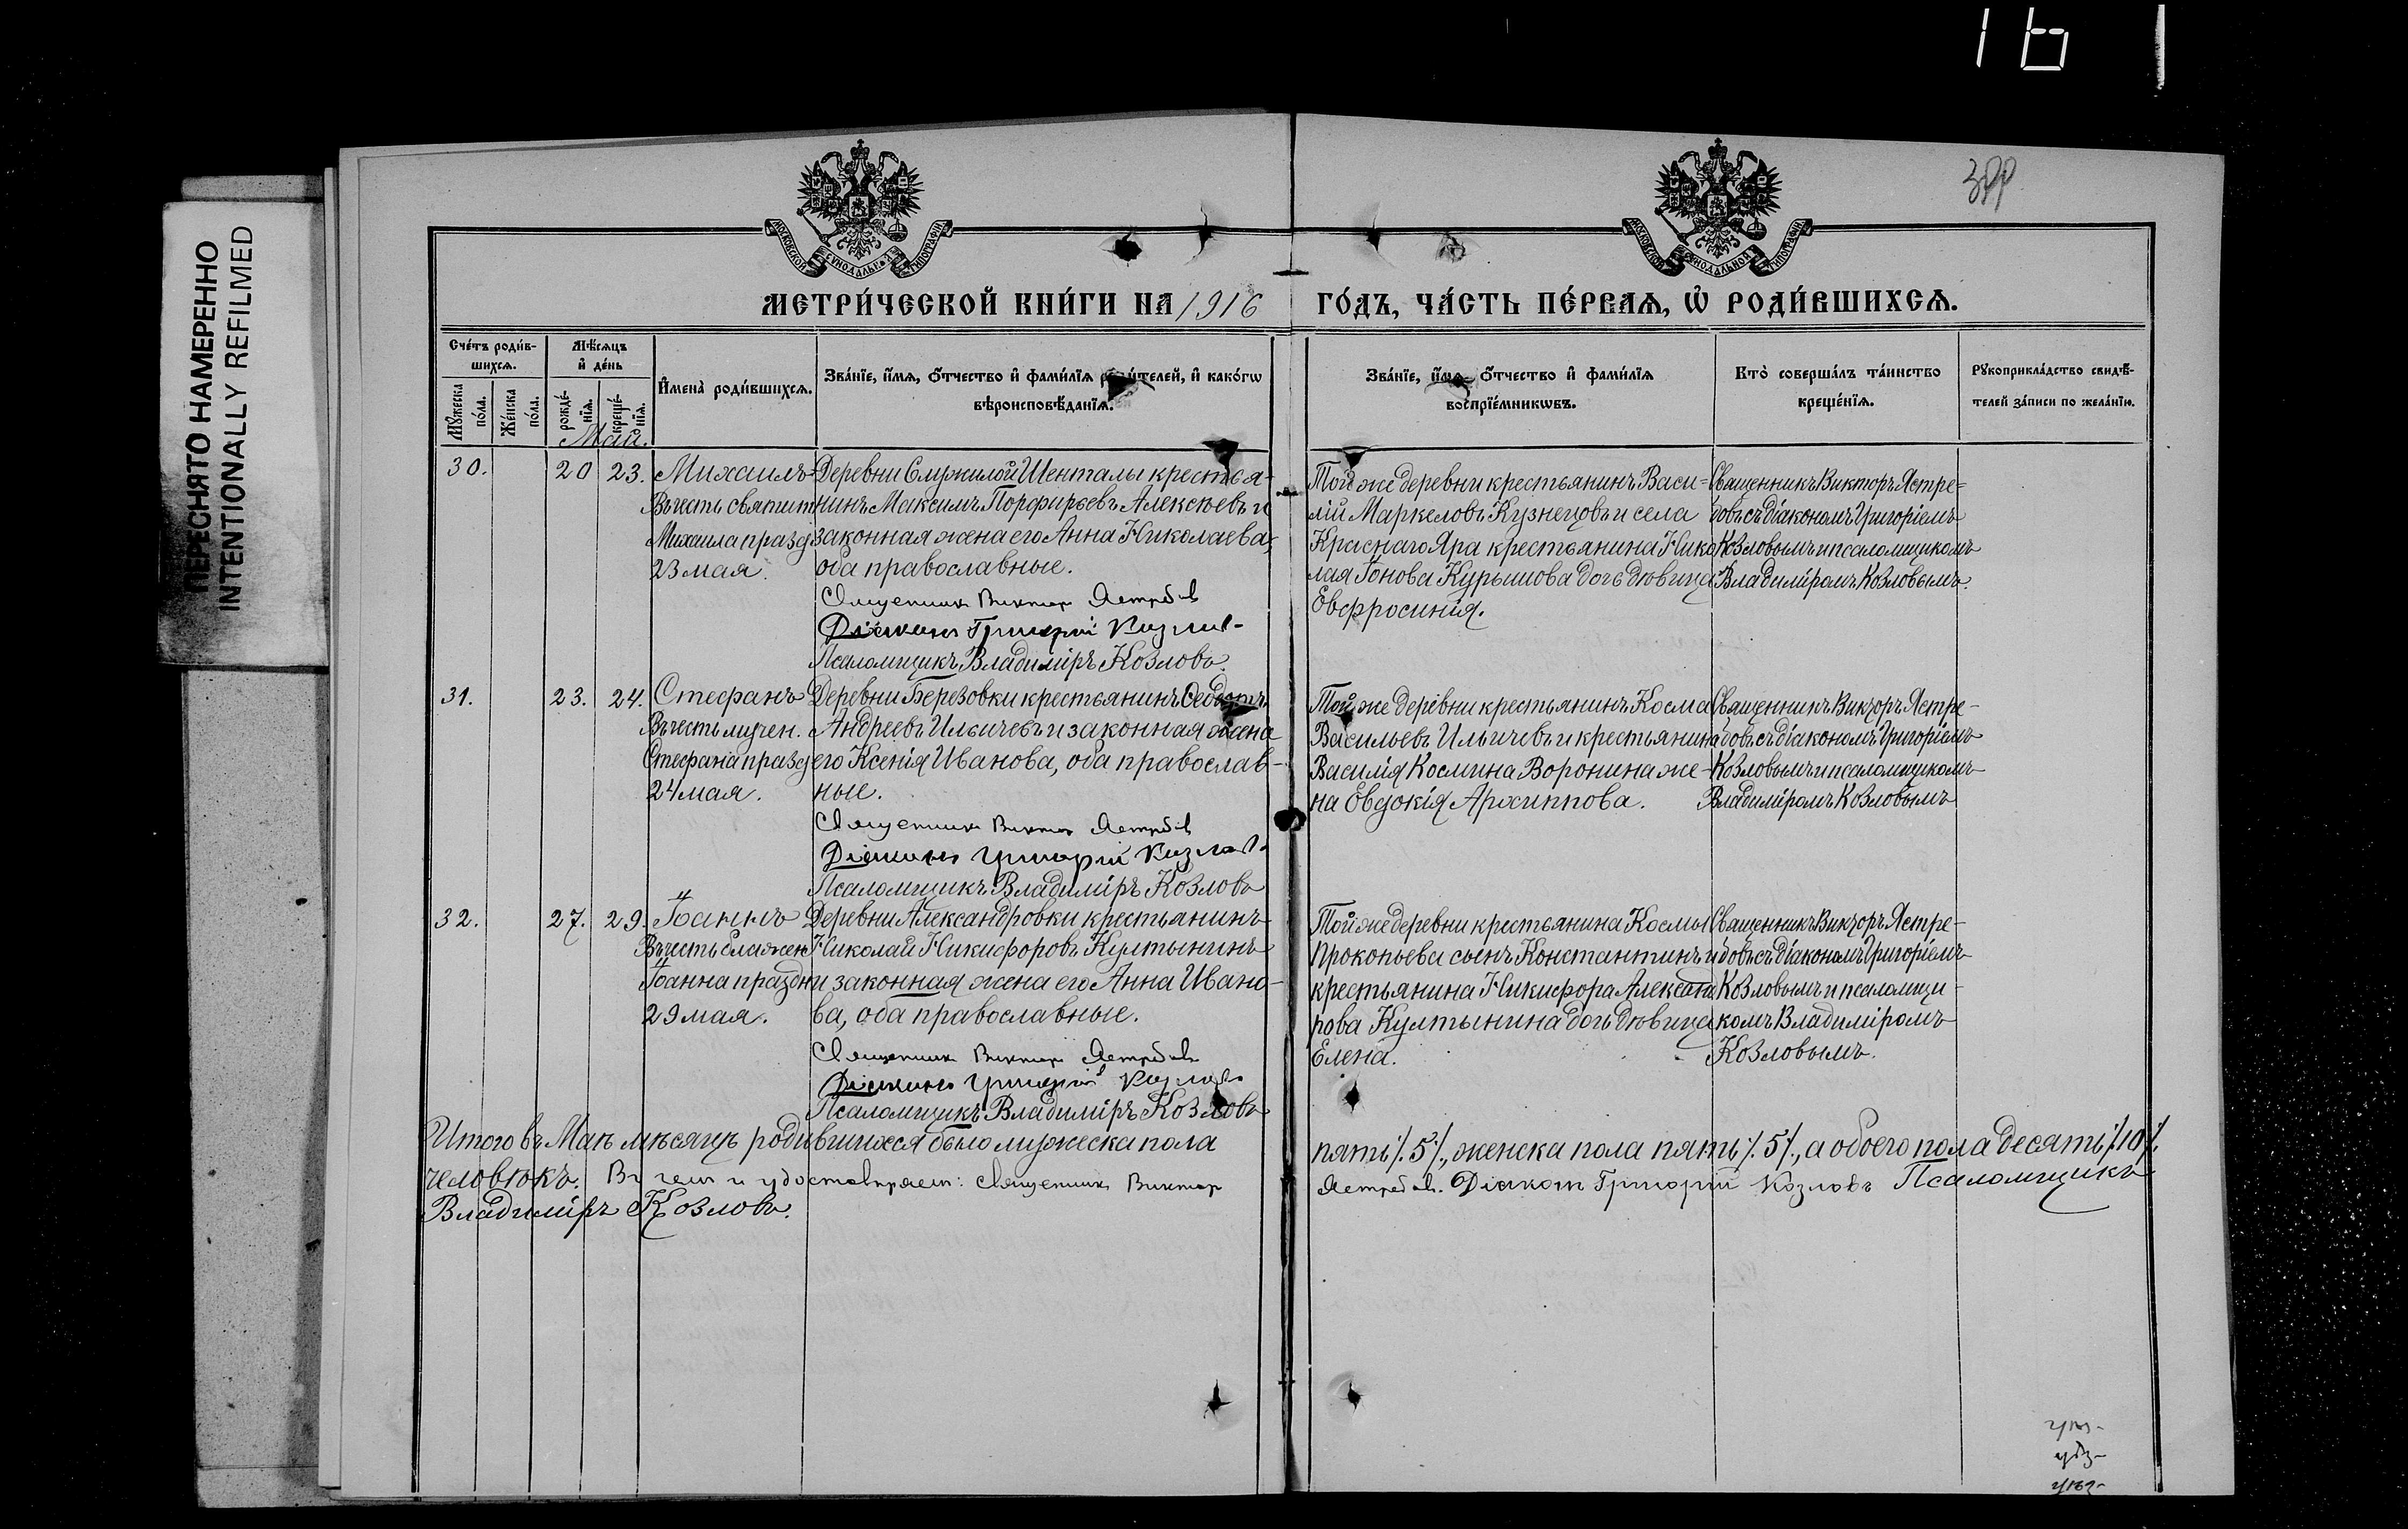 ПЕРЕСНЯТО НАМЕРЕННО
INTENTIONALLY REFILMED
МОСКОВСКОЙ СѴНОДАЛЬНОЙ ТИПОГРАФІИ
МОСКОВСКОЙ СѴНОДАЛЬНОЙ ТИПОГРАФІИ
МЕТРИ́ЧЕСКОЙ КНИ́ГИ НА 1916 ГО́ДЪ, ЧА́СТЬ ПЕ́РВАЯ, Ѡ҆ РОДИ́ВШИХСѦ.
Сче́тъ роди́в-
шихсѧ.
Мꙋ́жеска по́ла.
Же́нска по́ла.
Мѣ́сѧцъ
и҆ де́нь
рожде́-
нїѧ.
креще́-
нїѧ.
И҆мена̀ роди́вшихсѧ.
Зва́нїе, и҆́мѧ, ѻ҆́тчество и҆ фами́лїѧ роди́телей, и҆ како́гѡ
вѣроисповѣ́данїѧ.
Зва́нїе, и҆́мѧ, ѻ҆́тчество и҆ фами́лїѧ
воспрїе́мникѡвъ.
Кто̀ соверша́лъ та́инство
креще́нїѧ.
Рꙋкоприкла́дство свидѣ́-
телей за́писи по жела́нїю.
Май.
30.
20
23.
Михаилъ
Въ честь святит
Михаила празд
23 мая.
Деревни Служилой Шенталы крестья-
нинъ Максимъ Порфирьевъ Алексѣевъ и
законная жена его Анна Николаева,
оба православные.
Священникъ Викторъ Ястребовъ
Діаконъ Григорій Козловъ
Псаломщикъ Владиміръ Козловъ.
Той же деревни крестьянинъ Васи=
лій Маркеловъ Кузнецовъ и села
Краснаго Яра крестьянина Нико
лая Іонова Курышова дочь дѣвица
Евфросинія.
Священникъ Викторъ Ястре=
бовъ съ діакономъ Григоріемъ
Козловымъ и псаломщикомъ
Владиміромъ Козловымъ.
31.
23.
24.
Стефанъ
Въ честь мучен.
Стефана празд
24 мая.
Деревни Березовки крестьянинъ Ѳедотъ
Андреевъ Ильичевъ и законная жена
его Ксенія Иванова, оба православ-
ные.
Священникъ Викторъ Ястребовъ
Діаконъ Григорій Козловъ
Псаломщикъ Владиміръ Козловъ
Той же деревни крестьянинъ Косма
Васильевъ Ильичевъ и крестьянина
Василія Космина Воронина же-
на Евдокія Архиппова.
Священникъ Викторъ Ястре-
бовъ съ діакономъ Григоріемъ
Козловымъ и псаломщикомъ
Владиміромъ Козловымъ
32.
27.
29.
Іоаннъ
Въ честь блажен
Іоанна праздн
29 мая.
Деревни Александровки крестьянинъ
Николай Никифоровъ Култынинъ
и законная жена его Анна Ивано-
ва, оба православные.
Священникъ Викторъ Ястребовъ
Діаконъ Григорій Козловъ
Псаломщикъ Владиміръ Козловъ
Той же деревни крестьянина Космы
Прокопьева сынъ Константинъ и
крестьянина Никифора Александ
рова Култынина дочь дѣвица
Елена.
Священникъ Викторъ Ястре-
бовъ съ діакономъ Григоріемъ
Козловымъ и псаломщи-
комъ Владиміромъ
Козловымъ.
Итого въ Маѣ мѣсяцѣ родившихся было мужеска пола пять /.5/., женска пола пять /.5/., а обоего пола десять /.10/.
человѣкъ. Въ чемъ и удостовѣряемъ: Священникъ Викторъ Ястребовъ. Діаконъ Григорій Козловъ Псаломщикъ
Владиміръ Козловъ.